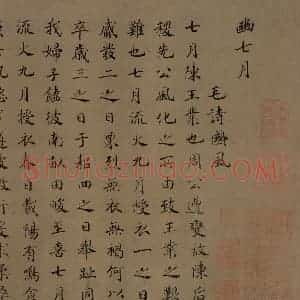 豳七月
毛詩豳風
七月陳王業也周公遭變故陳后
稷先公風化之所由致王業之艱
難也七月流火九月授衣一之日
觱發二之日栗烈無衣無褐何以
卒歲三之日于耜四之日舉趾同
我婦子饁彼南畝田畯至喜七月
流火九月授衣春日載陽有鳴倉